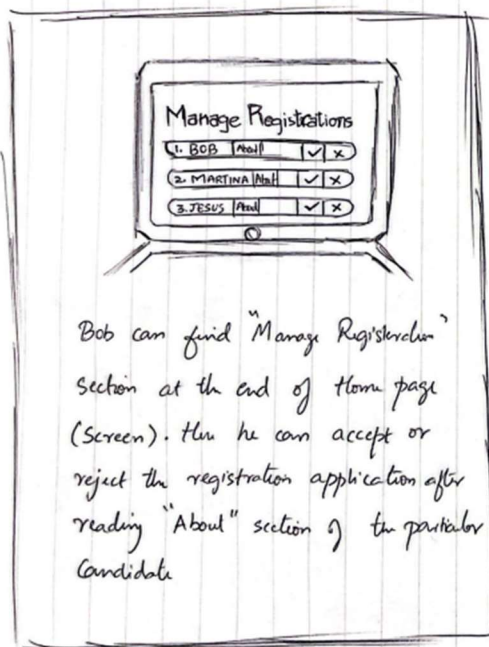 Manage Registrations
1. BOB About ✓ x
2. MARTINA About ✓ x
3. JESUS About ✓ x
Bob can find "Manage Registration"
section at the end of Home page
(Screen). Here he can accept or
reject the registration application after
reading "About" section of the particular
Candidate